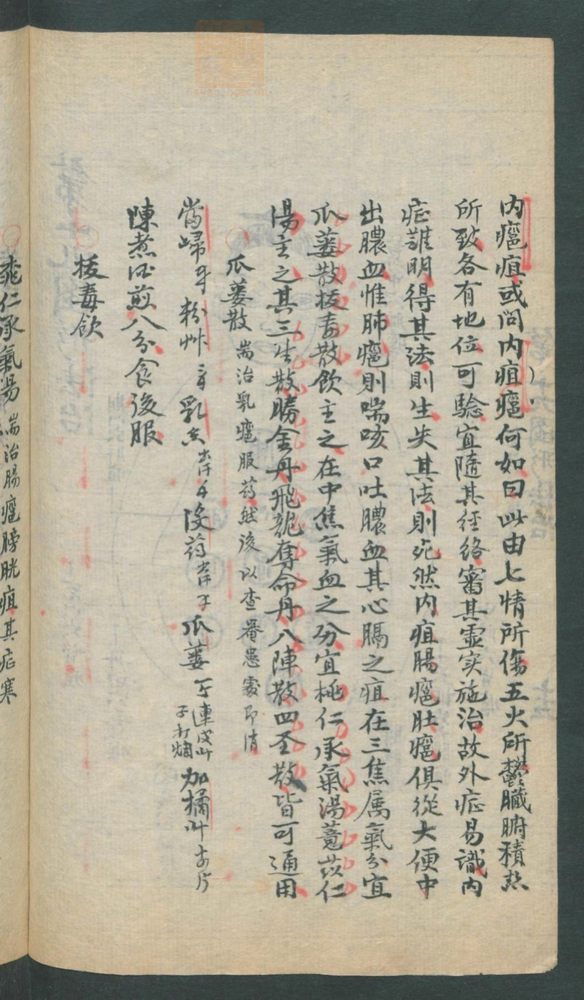 内癰疽或问内疽癰何如曰此由七情所傷五火所鬱臟腑積熱
所致各有地位可驗宜隨其经络審其虚实施治故外症易識内
症難明得其法則生失其法則死然内疽腸癰肚癰俱從大便中
出膿血惟肺癰則喘咳口吐膿血其心膈之疽在三焦属氣分宜
瓜蒌散拔毒散飲主之在中焦氣血之分宜桃仁承氣湯薏苡仁
湯主之其三生散勝金丹飛龍奪命丹八陣散四圣散皆可通用
瓜蒌散 耑治乳癰服药然後以查罨患處即消
當歸 粉艸 乳香 没药 瓜蒌 連皮 子打爛 加橘叶
陳煮酒煎八分食後服
拔毒飲
桃仁承氣湯 耑治腸癰膀胱疽其症寒